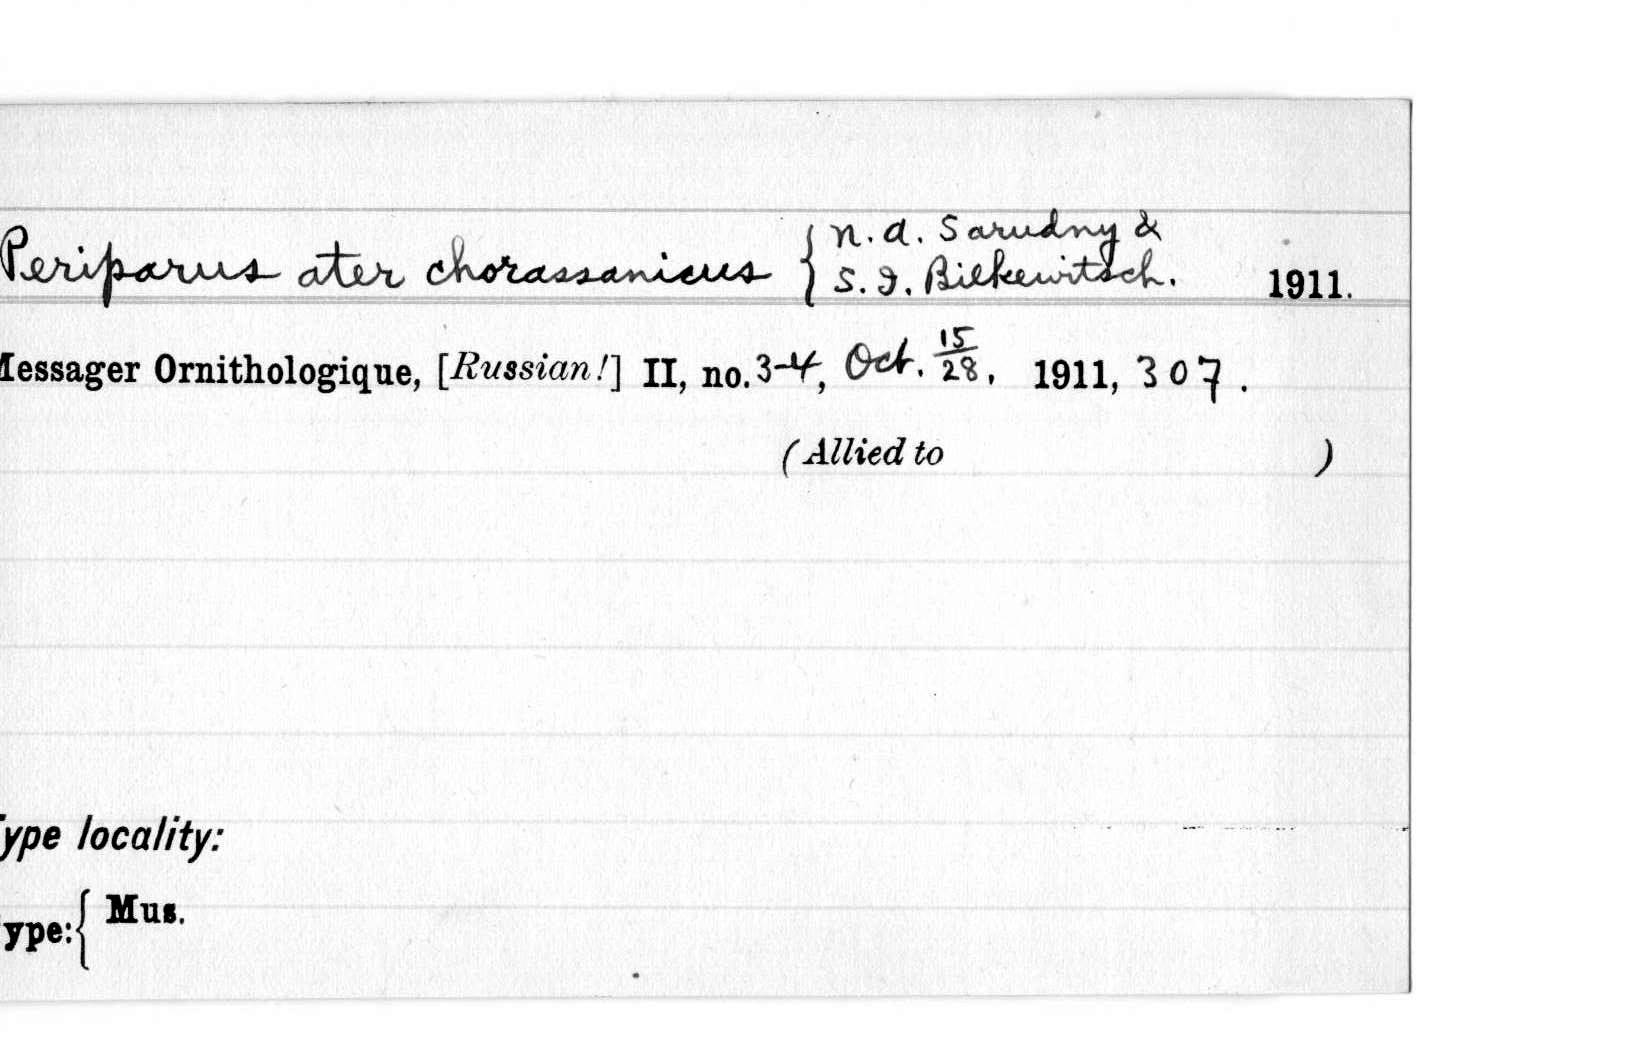 Periparus ater chorassanicus { N. A. Sarudny &
S. I. Bilkewitsch. 1911.
Messager Ornithologique, [Russian!] II, no. 3-4, Oct. 15/28, 1911, 307.
(Allied to )
Type locality:
Type: { Mus.